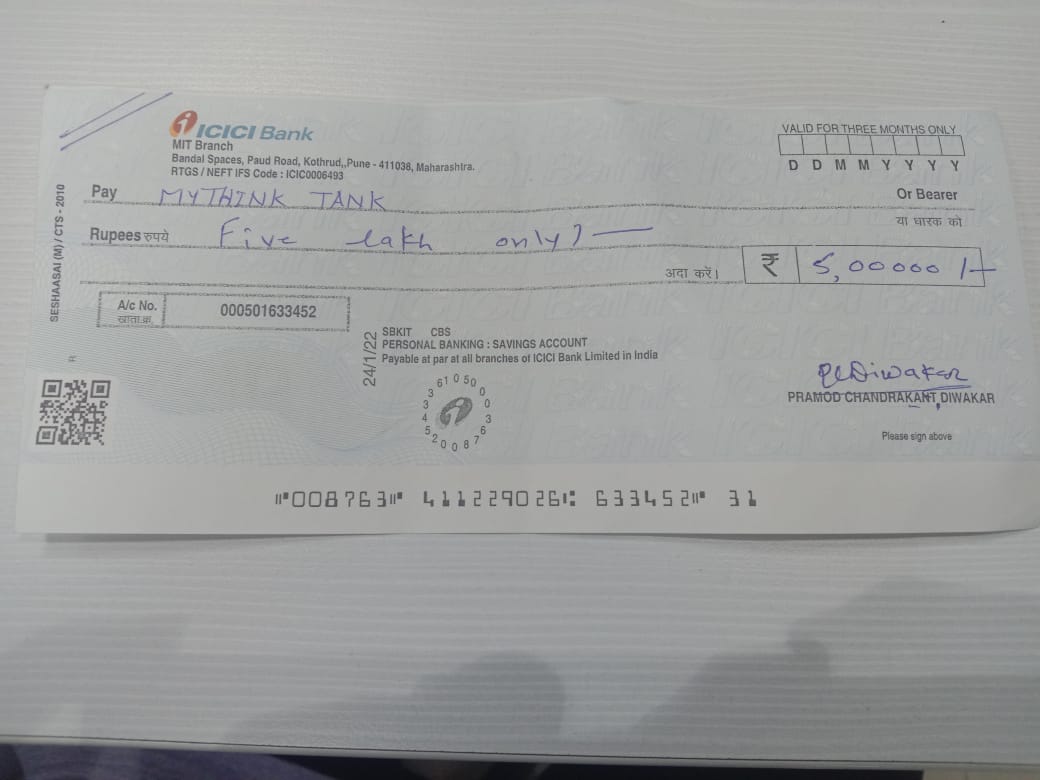 ICICI Bank
MIT Branch
Bandal Spaces, Paud Road, Kothrud,,Pune - 411038, Maharashtra.
RTGS / NEFT IFS Code : ICIC0006493
VALID FOR THREE MONTHS ONLY
D D M M Y Y Y Y
Pay MYTHINK TANK Or Bearer
या धारक को
Rupees रुपये Five lakh only
अदा करें। ₹ 5,00000/-
A/c No. 000501633452
खाता.क्र.
SBKIT CBS
PERSONAL BANKING : SAVINGS ACCOUNT
Payable at par at all branches of ICICI Bank Limited in India
24/1/22
SESHAASAI (M) / CTS - 2010
R
PCDiwakar
PRAMOD CHANDRAKANT DIWAKAR
Please sign above
⑈008763⑈ 411229026⑆ 633452⑈ 31